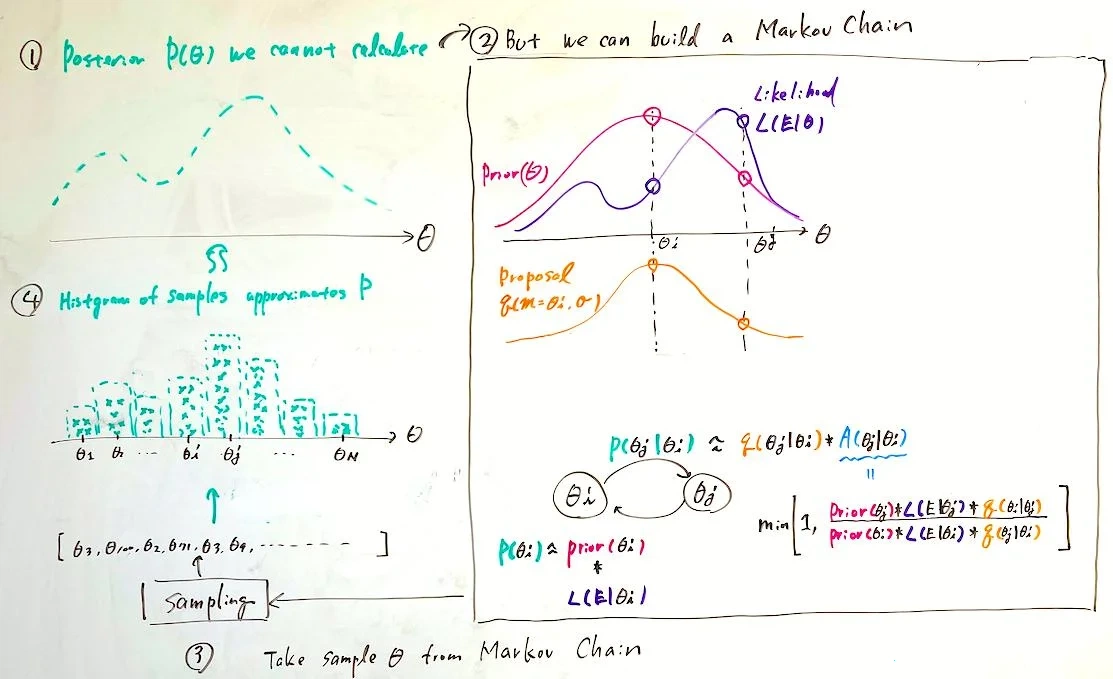 ① Posterior P(θ) we cannot calculate
θ
④ Histgram of samples approximates P
θ
θ1 θ2 ... θi θj ... θN
[ θ3, θ100, θ2, θ71, θ3, θ9, - - - - - - - - ]
Sampling
③ Take sample θ from Markov Chain
② But we can build a Markov Chain
Likelihood
L(E|θ)
Prior(θ)
θi θj θ
Proposal
q(m=θi, σ)
P(θj|θi) ≈ q(θj|θi) * A(θj|θi)
=
θi θj
min [ 1, Prior(θj)*L(E|θj)*q(θi|θj)
Prior(θi)*L(E|θi)*q(θj|θi) ]
P(θi) ≈ prior(θi)
*
L(E|θi)